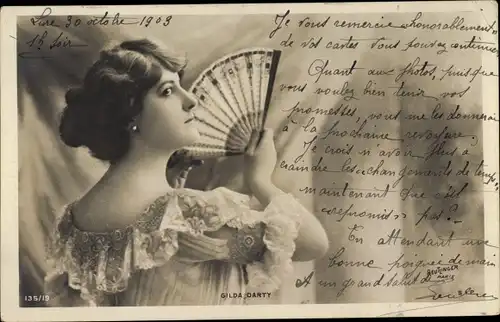 Lire 30 octobre 1903
15 Soir
Je vous remercie "honorablement"
de vos cartes vous pouvez continuer
Quant aux photos, puisque
vous voulez bien tenir vos
promesses, vous me les donnerai
à la prochaine
Je crois n'avoir plus à
craindre les changements de temps,
maintenant que c'est
"corepromis" pas?
En attendant une
bonne poignée de main
A un grand salut
REUTLINGER
PARIS
GILDA DARTY
135/19